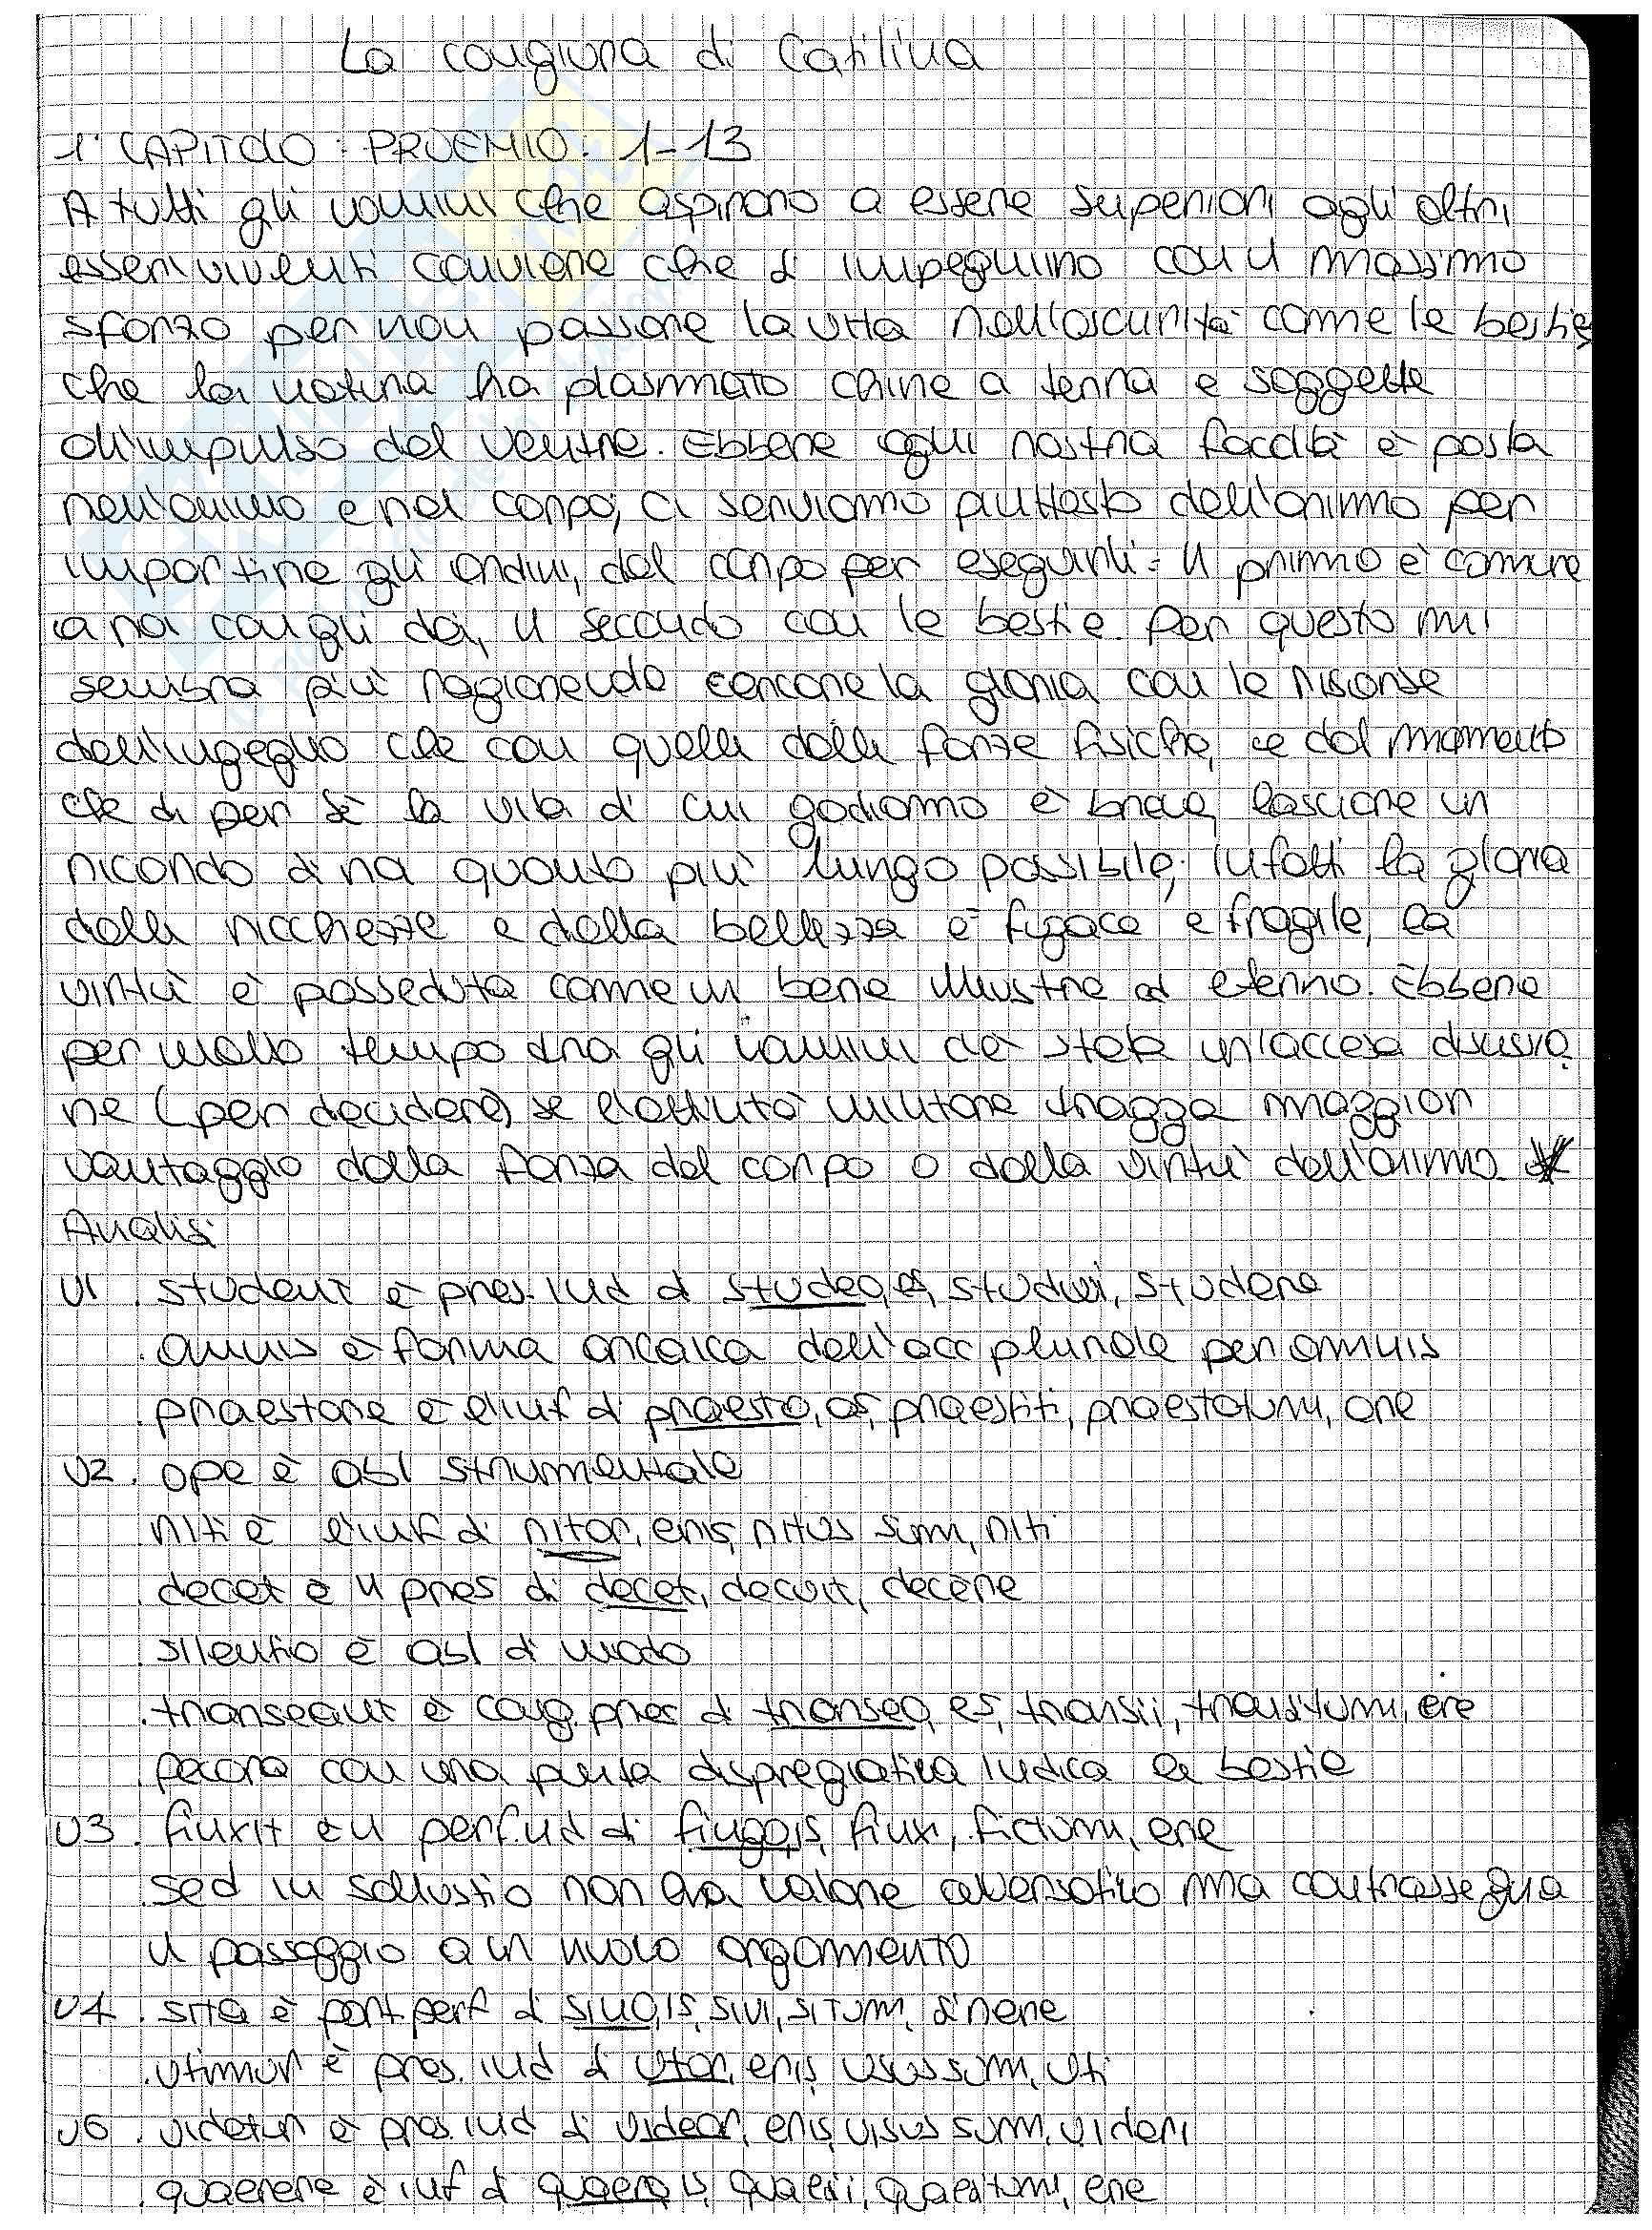 La congiura di Catilina
1° CAPITOLO: PROEMIO. 1-13
A tutti gli uomini che aspirano a essere superiori agli altri
esseri viventi conviene che si impegnino con il massimo
sforzo per non passare la vita nell'oscurità come le bestie,
che la natura ha plasmato chine a terra e soggette
all'impulso del ventre. Ebbene ogni nostra facoltà è posta
nell'animo e nel corpo; ci serviamo piuttosto dell'animo per
impartire gli ordini, del corpo per eseguirli: il primo è comune
a noi con gli dei, il secondo con le bestie. Per questo mi
sembra più ragionevole cercare la gloria con le risorse
dell'ingegno che con quelle delle forze fisiche, e dal momento
che di per sé la vita di cui godiamo è breve, lasciare un
ricordo di noi quanto più lungo possibile; infatti la gloria
delle ricchezze e della bellezza è fugace e fragile, la
virtù è posseduta come un bene illustre ed eterno. Ebbene
per molto tempo tra gli uomini c'è stata un'accesa discussio
ne (per decidere) se l'attività militare tragga maggior
vantaggio dalla forza del corpo o dalla virtù dell'animo. *
Analisi
V1 . student è pres. ind di studeo, es, studui, studere
. omnis è forma arcaica dell'acc plurale per omnis
. praestare è l'inf di praesto, as, praestiti, praestatum, are
V2 . ope è abl strumentale
niti è l'inf di nitor, eris, nitus sum, niti
. decet è il pres di decet, decuit, decēre
. silentio è abl di modo
. transeant è cong. pres di transeo, es, transii, transitum, ere
. pecora con una punta dispregiativa indica le bestie
V3 . finxit è il perf. ind di fingo, is, finxi, fictum, ere
. sed in Sallustio non ha valore avversativo ma contrassegna
il passaggio a un nuovo argomento
V4 . sita è part perf di sino, is, sivi, situm, sinere
. utimur è pres. ind di utor, eris, usus sum, uti
V6 . videtur è pres. ind di videor, eris, visus sum, videri
. quaerere è inf di quaero, is, quaesii, quaesitum, ere